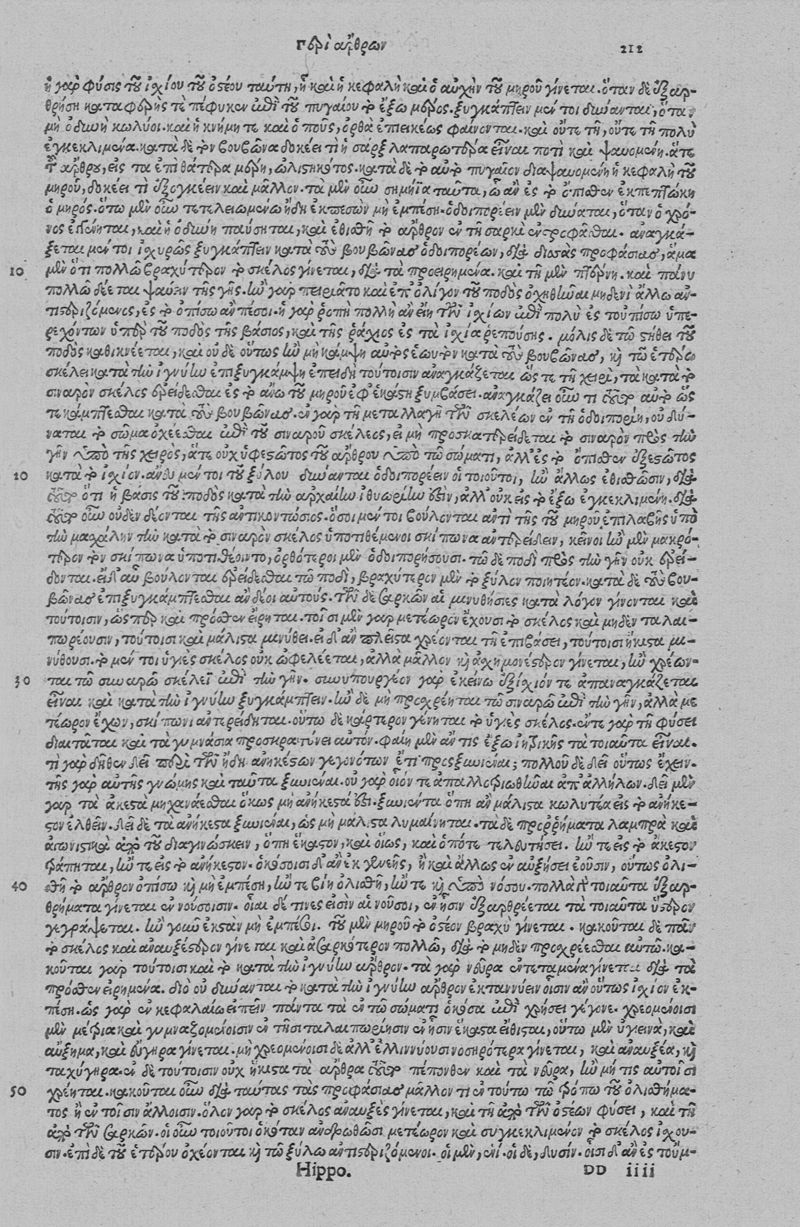 Περὶ ἄρθρων 212
ἡ γὰρ φύσις τοῦ ἰσχίου τοῦ ὀστέου ταύτη, ἢ καὶ ἡ κεφαλὴ καὶ ὁ αὐχὴν τοῦ μηροῦ γίνεται. ὅταν δὲ ἐξαρ-
θρήση καταφερής τε πέφυκεν ἐπὶ τοῦ πυγαίου τὸ ἔξω μέρος. ξυγκάπτειν μέν τοι δύνανται, ὅταν
μὴ ὀδύνη κωλύοι. καὶ ἡ κνήμη τε καὶ ὁ ποὺς, ὀρθὰ ἐπιεικέως φαίνονται. καὶ οὔτε τῆ, οὔτε τῆ πολὺ
ἐγκεκλιμένα. κατὰ δὲ τὸν βουβῶνα δοκέει τὶ ἡ σὰρξ λαπαρωτέρα εἶναι ποτὶ καὶ ψαυομένη. ἅτε
τοῦ ἄρθρου, εἰς τὰ ἐπὶ θάτερα μέρη, ὠλισθηκότος. κατὰ δὲ αὐτὸ τὸ πυγαῖον διαψαυομένη ἡ κεφαλὴ τοῦ
μηροῦ, δοκέει τὶ ἐξογκέειν καὶ μᾶλλον. τὰ μὲν οὖν σημήϊα ταῦτα, ᾧ ἂν ἐς τὸ ὄπισθεν ἐκπεπτώκη
ὁ μηρός. ὅτω μὲν οὖν τετελειωμένω ἤδη ἐκπεσὼν μὴ ἐμπέση. ὁδοιπορέειν μὲν δύναται, ὅταν ὁ χρό-
νος ἐγγένηται, καὶ ἡ ὀδύνη παύσηται, καὶ ἐθισθῆ τὸ ἄρθρον ἐν τῆ σαρκὶ ἐνστρέφεσθαι. ἀναγκά-
ζεται μέν τοι ἰσχυρῶς ξυγκάπτειν κατὰ τοὺς βουβῶνας ὁδοιπορέων, διὰ δισσὰς προφάσιας, ἅμα
10 μὲν ὅτι πολλῶ βραχύτερον τὸ σκέλος γίνεται, διὰ τὰ προειρημένα. καὶ τῆ μὲν πτέρνη. καὶ πάνυ
πολλῶ δέεται ψαύειν τῆς γῆς. ἢν γὰρ πειρῶτο καὶ ἐπ' ὀλίγον τοῦ ποδὸς ὀχηθῆναι μηδενὶ ἄλλω ἀν-
τιστηριζόμενος, ἐς τὸ ὀπίσω ἂν πέσοι. ἡ γὰρ ῥοπὴ πολλὴ ἂν εἴη τῶν ἰσχίων ἐπὶ πολὺ ἐς τοὐπίσω ὑπε-
ρεχόντων ὑπὲρ τοῦ ποδὸς τῆς βάσιος, καὶ τῆς ῥάχιος ἐς τὰ ἰσχία ῥεπούσης. μόλις δὲ τῶ στήθει τοῦ
ποδὸς καθικνέεται, καὶ οὐδὲ οὕτως ἢν μὴ κάμψη αὐτὸς ἑωυτὸν κατὰ τοὺς βουβῶνας, καὶ τῶ ἑτέρω
σκέλει κατὰ τὴν ἰγνύην ἐπιξυγκάμψη ἐπειδὴ τούτοισιν ἀναγκάζεται ὥς τε τῆ χειρὶ, τὰ κατὰ τὸ
σιναρὸν σκέλος ἐρείδεσθαι ἐς τὸ ἄνω τοῦ μηροῦ ἐφ' ἑκάστη ξυμβάσει. ἀναγκάζει οὖν τι τοῦτο αὐτὸ ὥς
τε κάμπτεσθαι κατὰ τοὺς βουβῶνας. ἐν γὰρ τῆ μεταλλαγῆ τῶν σκελέων ἐν τῆ ὁδοιπορίη, οὐ δύ-
ναται τὸ σῶμα ὀχέεσθαι ἐπὶ τοῦ σιναροῦ σκέλεος, εἰ μὴ προσκατερείδεται τὸ σιναρὸν πρὸς τὴν
γῆν ὑπὸ τῆς χειρὸς, ἅτε οὐχ ὑφεστῶτος τοῦ ἄρθρου ὑπὸ τῶ σώματι, ἀλλ' ἐς τὸ ὄπισθεν ἐξεστῶτος
20 κατὰ τὸ ἰσχίον. ἄνευ μέν τοι τοῦ ξύλου δύνανται ὁδοιπορέειν οἱ τοιοῦτοι, ἢν ἄλλως ἐθισθῶσιν, διὰ
τοῦτο ὅτι ἡ βάσις τοῦ ποδὸς κατὰ τὴν ἀρχαίην ἰθυωρίην ἐστὶν, ἀλλ' οὐκ εἰς τὸ ἔξω ἐγκεκλιμένη. διὰ
τοῦτο οὖν οὐδὲν δέονται τῆς ἀντικοντώσιος. ὅσοι μέν τοι βούλονται ἀντὶ τῆς τοῦ μηροῦ ἐπιλαβῆς ὑπὸ
τὴν μασχάλην τὴν κατὰ τὸ σιναρὸν σκέλος ὑποτιθέμενοι σκίπωνα ἀντερείδειν, κεῖνοι ἢν μὲν μακρό-
τερον τὸν σκίπωνα ὑποτιθέοιντο, ὀρθότεροι μὲν ὁδοιπορήσουσι. τῶ δὲ ποδὶ πρὸς τὴν γῆν οὐκ ἐρεί-
δονται. εἰ δ' αὖ βούλονται ἐρείδεσθαι τῶ ποδὶ, βραχύτερον μὲν τὸ ξύλον ποιητέον. κατὰ δὲ τοὺς βου-
βῶνας ἐπιξυγκάμπτεσθαι ἂν δέοι αὐτούς. τῶν δὲ σαρκῶν αἱ μινυθήσιες κατὰ λόγον γίνονται καὶ
τούτοισιν, ὥσπερ καὶ πρόσθεν εἴρηται. τοῖσι μὲν γὰρ μετέωρον ἔχουσι τὸ σκέλος καὶ μηδὲν ταλαι-
πωρέουσιν, τούτοισι καὶ μάλιστα μινύθει. οἳ δ' ἂν πλεῖστα χρέονται τῆ ἐπιβάσει, τούτοισι ἥκιστα μι-
νύθουσι. τὸ μέν τοι ὑγιὲς σκέλος οὐκ ὠφελέεται, ἀλλὰ μᾶλλον καὶ ἀσχημονέστερον γίνεται, ἢν χρέων-
30 ται τῶ σιναρῶ σκέλει ἐπὶ τὴν γῆν. συνυπουργέον γὰρ ἐκείνω ἐξίσχιόν τε ἀπαναγκάζεται
εἶναι καὶ κατὰ τὴν ἰγνύην ξυγκάμπτειν. ἢν δὲ μὴ προσχρέηται τῶ σιναρῶ ἐπὶ τὴν γῆν, ἀλλὰ με-
τέωρον ἔχων, σκίπωνι ἀντερείδηται. οὕτω δὲ καρτερὸν γίνηται τὸ ὑγιὲς σκέλος. ἔν τε γὰρ τῆ φύσει
διαιτᾶται καὶ τὰ γυμνάσια προσκρατύνει αὐτόν. φαίη μὲν ἄν τις ἔξω ἰητρικῆς τὰ τοιαῦτα εἶναι.
τί γὰρ δῆθεν δεῖ περὶ τῶν ἤδη ἀνηκέστων γεγονότων ἔτι προσξυνιέναι; πολλοῦ δὲ δεῖ οὕτως ἔχειν.
τῆς γὰρ αὐτῆς γνώμης καὶ ταῦτα ξυνιέναι. οὐ γὰρ οἷόν τε ἀπαλλοτριωθῆναι ἀπ' ἀλλήλων. δεῖ μὲν
γὰρ τὰ ἀκεστὰ μηχανάεσθαι ὅκως μὴ ἀνήκεστα ἔσται. ξυνιέντα ὅπη ἂν μάλιστα κωλυτέα εἰς τὸ ἀνήκε-
στον ἐλθεῖν. δεῖ δὲ τὰ ἀνήκεστα ξυνιέναι, ὡς μὴ μάλιστα λυμαίνηται. τὰ δὲ προῤῥήματα λαμπρὰ καὶ
ἀγωνιστικὰ ἀπὸ τοῦ διαγινώσκειν, ὅπη ἕκαστον, καὶ οἵως, καὶ ὁπότε τελευτήσει. ἤν τε εἰς τὸ ἀκεστὸν
τράπηται, ἤν τε εἰς τὸ ἀνήκεστον. ὁκόσοισι δ' ἂν ἐκ γενεῆς, ἢ καὶ ἄλλως ἐν αὐξήσει ἐοῦσιν, οὕτως ὀλι-
40 σθῆ τὸ ἄρθρον ὀπίσω καὶ μὴ ἐμπέση, ἤν τε βίη ὀλισθῆ, ἤν τε καὶ ὑπὸ νόσου. πολλὰ δὲ τοιαῦτα ἐξαρ-
θρήματα γίνεται ἐν νούσοισιν. οἷαι δέ τινες εἰσὶν αἱ νοῦσοι, ἐν ᾗσιν ἐξαρθρέεται τὰ τοιαῦτα ὕστερον
γεγράψεται. ἢν γοῦν ἐκστὰν μὴ ἐμπέση. τοῦ μὲν μηροῦ τὸ ὀστέον βραχὺ γίνεται. κακοῦται δὲ πᾶν
τὸ σκέλος καὶ ἀναυξέστερον γίνεται καὶ ἀσαρκότερον πολλῶ, διὰ τὸ μηδὲν προσχρέεσθαι αὐτῶ. κα-
κοῦται γὰρ τούτοισι καὶ τὸ κατὰ τὴν ἰγνύην ἄρθρον. τὰ γὰρ νεῦρα ἐντεταμένα γίνεται διὰ τὰ
πρόσθεν εἰρημένα. διὸ οὐ δύνανται τὸ κατὰ τὴν ἰγνύην ἄρθρον ἐκταννύειν οἷσιν ἂν οὕτως ἰσχίον ἐκ-
πέση. ὡς γὰρ ἐν κεφαλαίω εἰπεῖν πάντα τὰ ἐν τῶ σώματι ὁκόσα ἐπὶ χρήσει γέγονε. χρεομένοισι
μὲν μέτρια καὶ γυμναζομένοισιν ἐν τῆσι ταλαιπωρίησιν ἐν ᾗσιν ἕκαστα εἴθισται, οὕτω μὲν ὑγιεινὰ, καὶ
αὔξημα, καὶ εὔγηρα γίνεται. μὴ χρεομένοισι δὲ ἀλλ' ἐλλιννύουσι νοσηρότερα γίνεται, καὶ ἀναυξέα, καὶ
ταχύγηρα. ἐν δὲ τούτοισιν οὐχ ἥκιστα τὰ ἄρθρα τοῦτο πέπονθεν καὶ τὰ νεῦρα, ἢν μή τις αὐτοῖσι
50 χρέηται. κακοῦται οὖν διὰ ταύτας τὰς προφάσιας μᾶλλον τὶ ἐν τούτω τῶ τρόπω τοῦ ὀλισθήμα-
τος ἢ ἐν τοῖσιν ἄλλοισιν. ὅλον γὰρ τὸ σκέλος ἀναυξὲς γίνεται, καὶ τῆ ἀπὸ τῶν ὀστέων φύσει, καὶ τῆ
ἀπὸ τῶν σαρκῶν. οἱ οὖν τοιοῦτοι ὁκόταν ἀνδρωθῶσι μετέωρον καὶ συγκεκλιμένον τὸ σκέλος ἴσχου-
σιν. ἐπὶ δὲ τοῦ ἑτέρου ὀχέονται καὶ τῶ ξύλω ἀντιστηριζόμενοι. οἱ μὲν, ἑνί. οἱ δὲ, δυσίν. οἷσι δ' ἂν ἐς τοὔμ-
Hippo. DD iiii